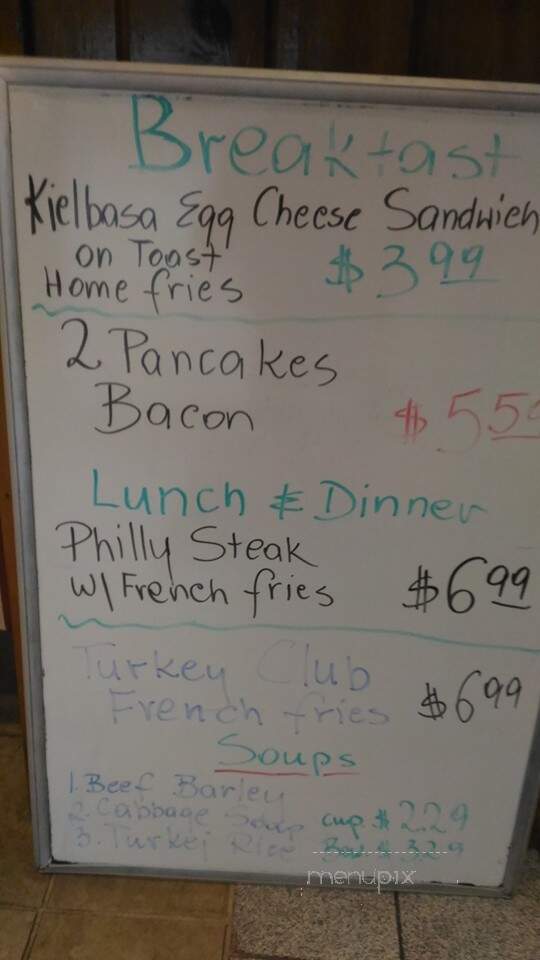 Breakfast
Kielbasa Egg Cheese Sandwich
on Toast
Home fries $3.99
2 Pancakes
Bacon $5.5
Lunch & Dinner
Philly Steak
w/ French fries $6.99
Turkey Club
French fries $6.99
Soups
1. Beef Barley
2. Cabbage Soup cup $2.29
3. Turkey Rice Bowl $3.29
menupix